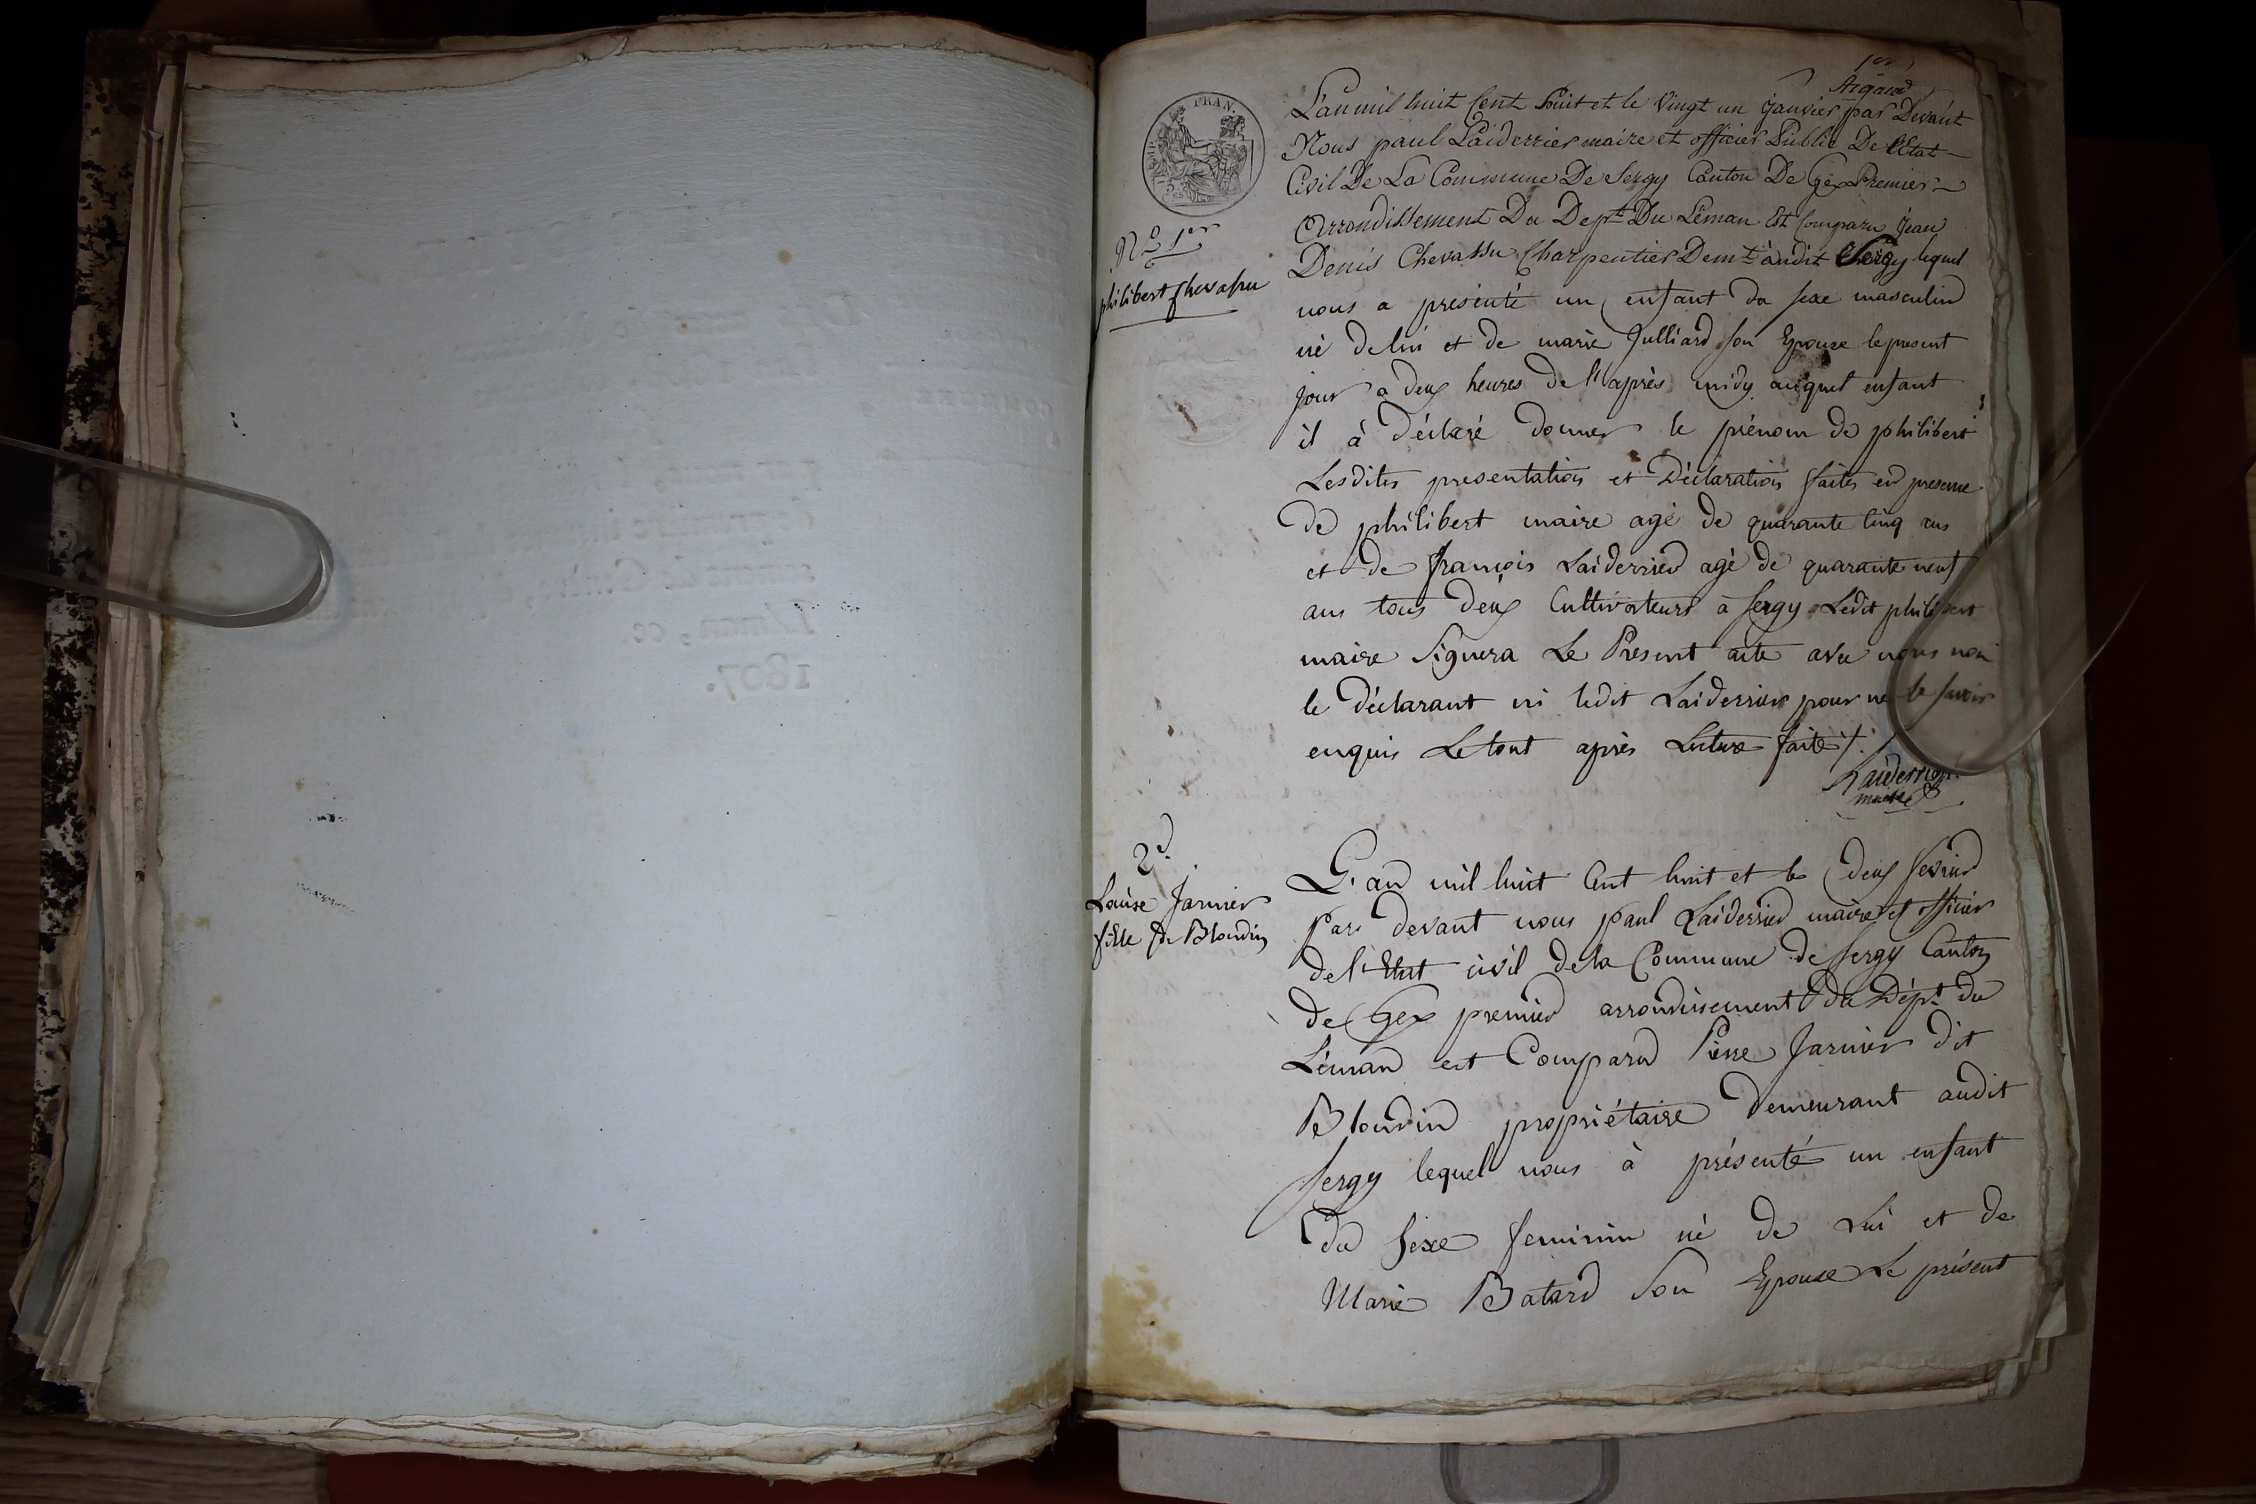 1er
Argand
L'an mil huit Cent huit et le Vingt un janvier par Devant
Nous paul Laiderrier maire et officier Public De l'Etat
Civil De La Commune De Sergy Canton De Gex Premier
Arrondissement Du Dept Du Léman Est Comparu Jean
Denis Chevassu Charpentier Demt audit Sergy lequel
nous a presenté un enfant du sexe masculin
né de lui et de marie Julliard son Epouse le present
jour a deux heures de l'après midy auquel enfant
il à déclaré donner le prénom de philibert
Lesdites presentation et Déclaration faites en presence
de philibert maire agé de quarante cinq ans
et de françois Laiderrier agé de quarante neuf
ans tous deux Cultivateurs à Sergy Ledit philibert
maire signera Le Present acte avec nous non
le déclarant ni ledit Laiderrier pour ne le savoir
enquis Le tout après Lecture faite ./.
Laiderrier
maire
FRAN.
No 1er
philibert chevassu
2d.
Louise Janier
fille de Blondin
L'an mil huit Cent huit et le deux fevrier
par devant nous paul Laiderrier maire et officier
de l'Etat civil de la Commune de Sergy Canton
de Gex premier arrondissement du Dépt du
Léman est Comparu Pierre Janier dit
Blondin propriétaire demeurant audit
Sergy lequel nous à présenté un enfant
du sexe feminin né de Lui et de
Marie Batard Son Epouse Le présent
1807.